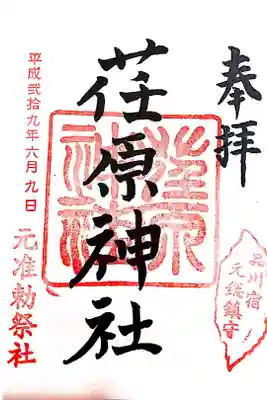 奉拝
荏原神社
平成弐拾九年六月九日
元准勅祭社
品川宿
元総鎮守